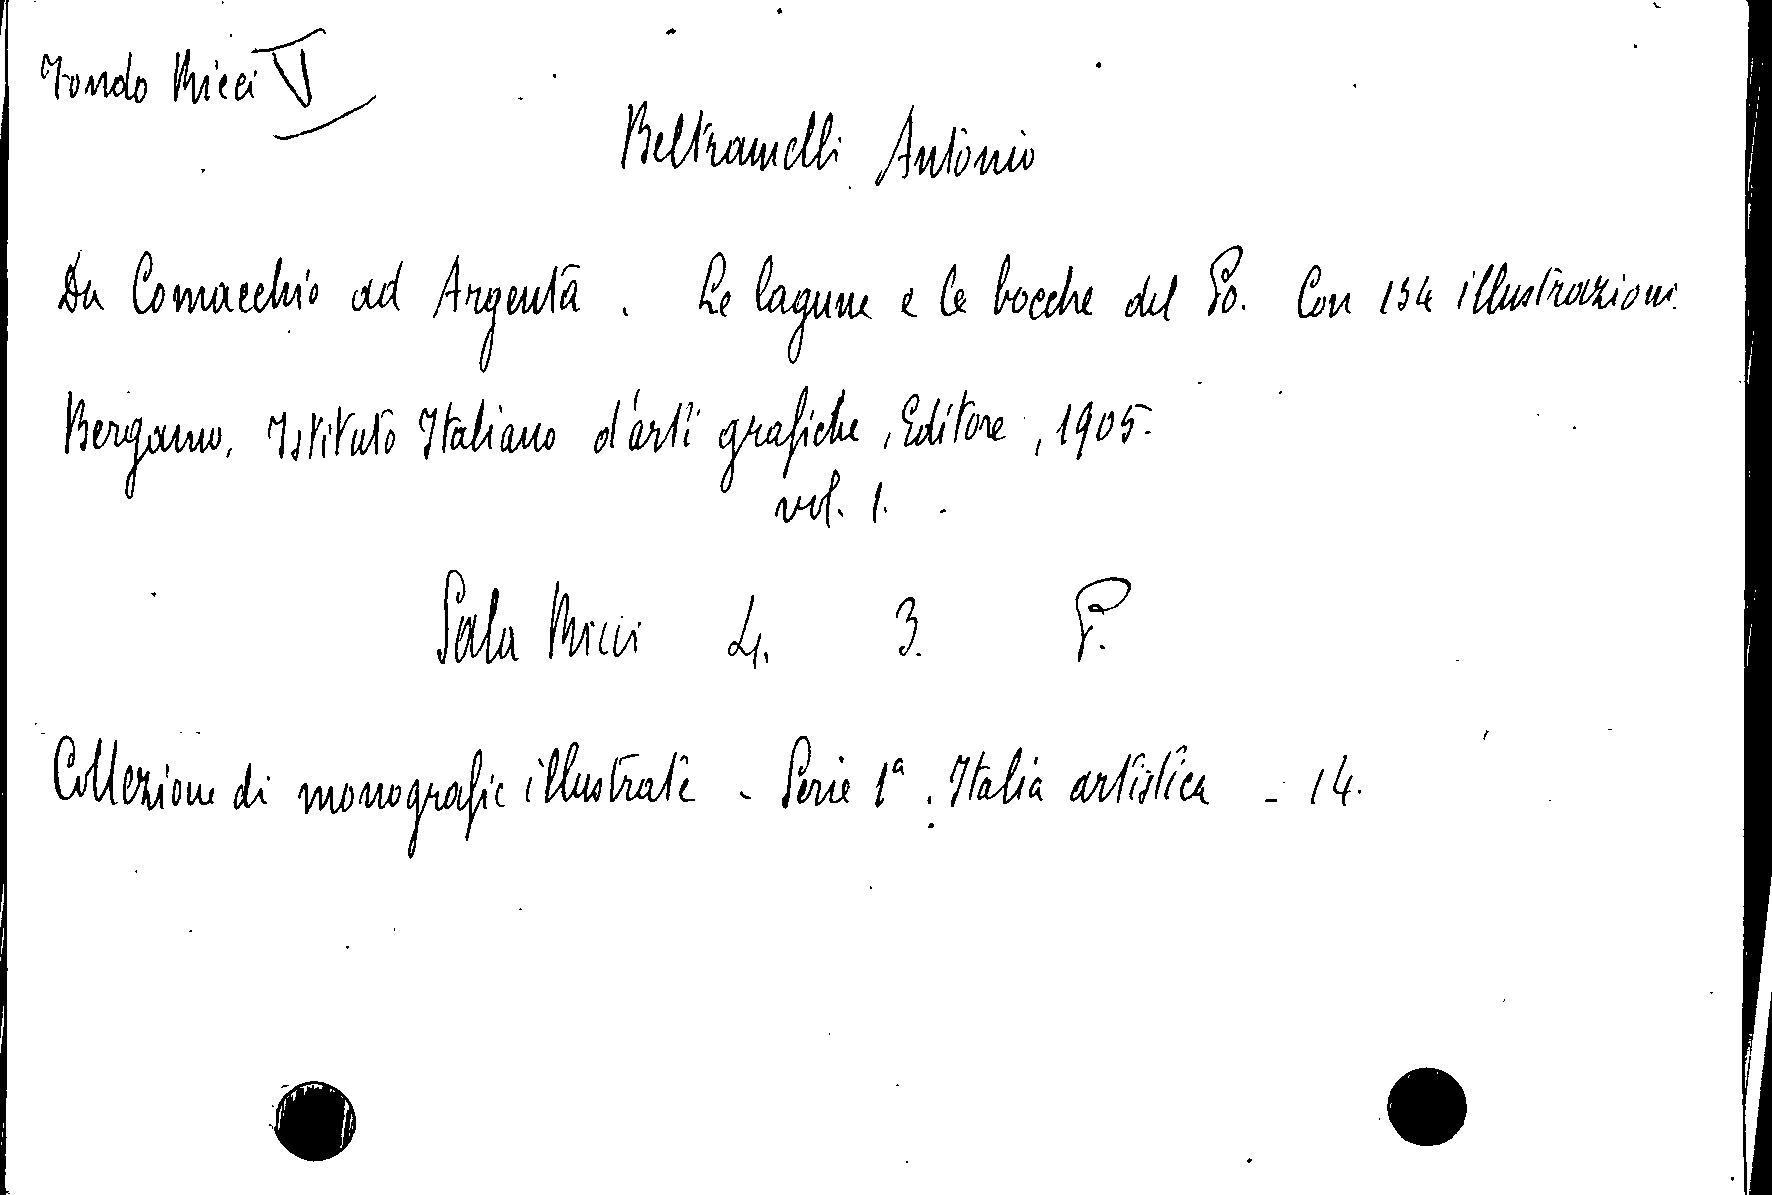 Fondo Ricci V
Beltramelli Antonio
Da Comacchio ad Argenta. Le lagune e le bocche del Po. Con 134 illustrazioni.
Bergamo, Istituto Italiano d'arti grafiche, Editore, 1905.
vol. 1.
Sala Ricci 4. 3. P.
Collezione di monografie illustrate - Serie 1ª. Italia artistica - 14.